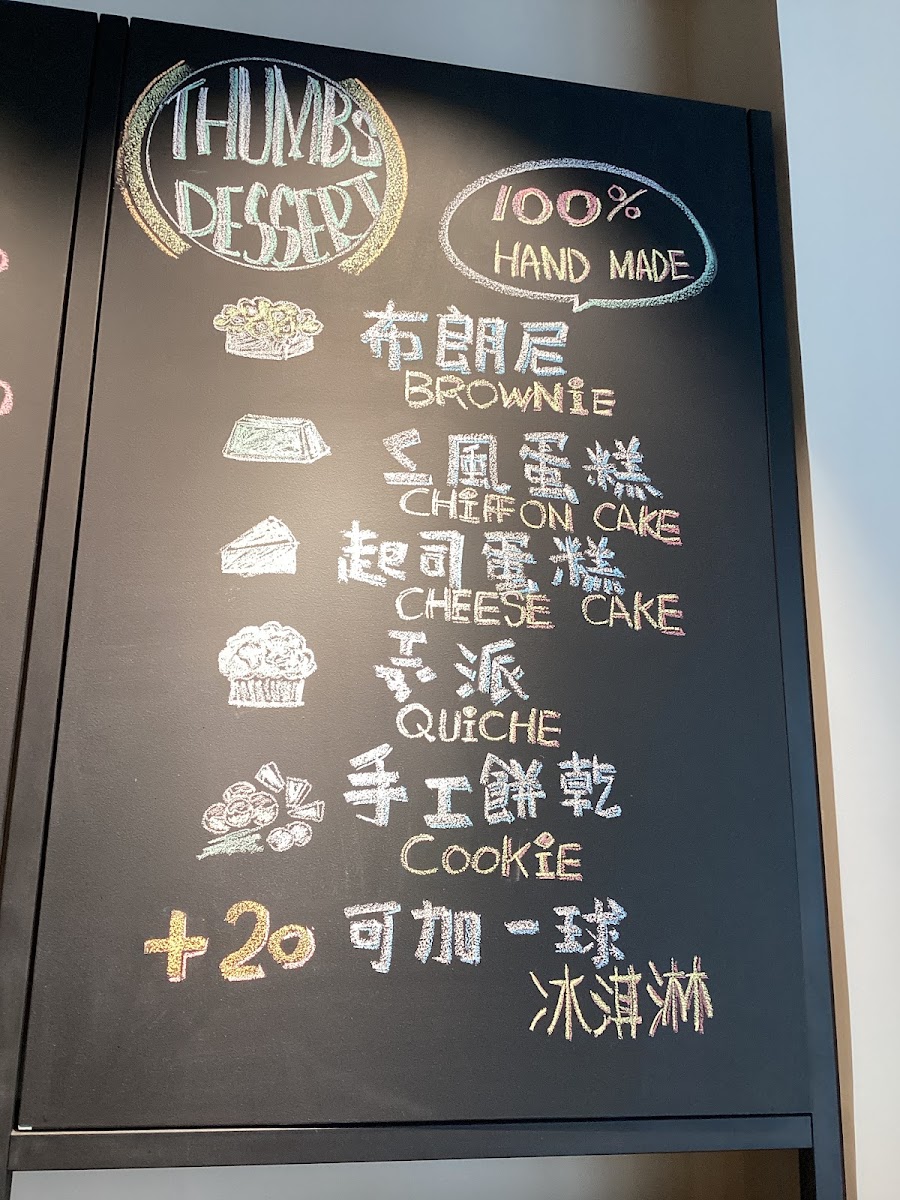 THUMBS
DESSERT
100%
HAND MADE
布朗尼
BROWNiE
ㄑㄧ風蛋糕
CHiFFON CAKE
起司蛋糕
CHEESE CAKE
ㄒㄧㄢˊ派
QUiCHE
手工餅乾
COOKiE
+20 可加一球
冰淇淋